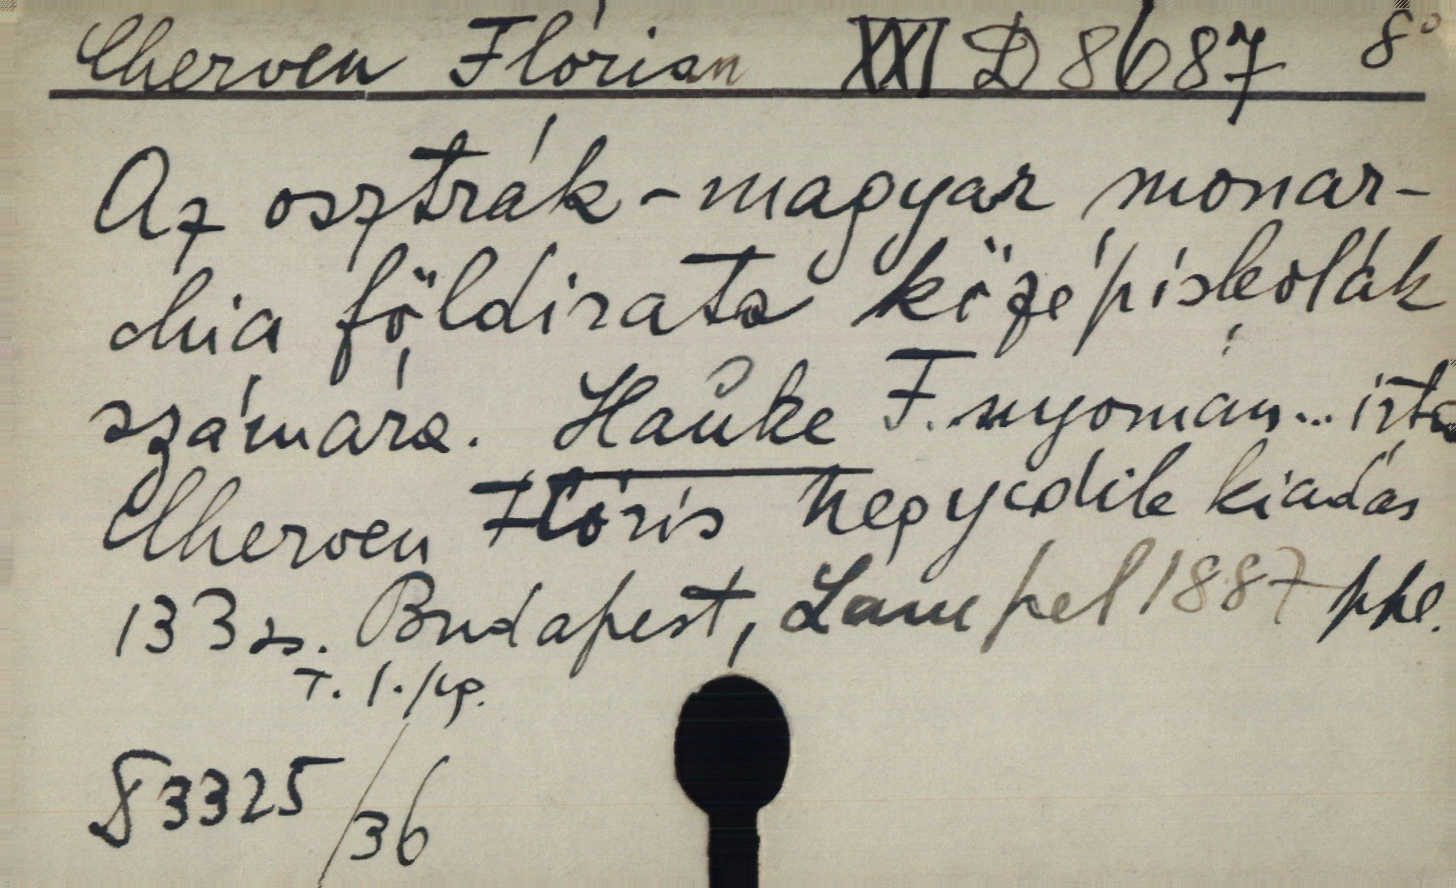 Cherven Flórian XXI D 8687 8°
Az osztrák-magyar monar-
chia földirata középiskolák
számára. Hanke F. nyomán... írta
Cherven Flóris Negyedik kiadás
133 s. Budapest, Lampel 1887 ppl.
T. 1.
83325/36